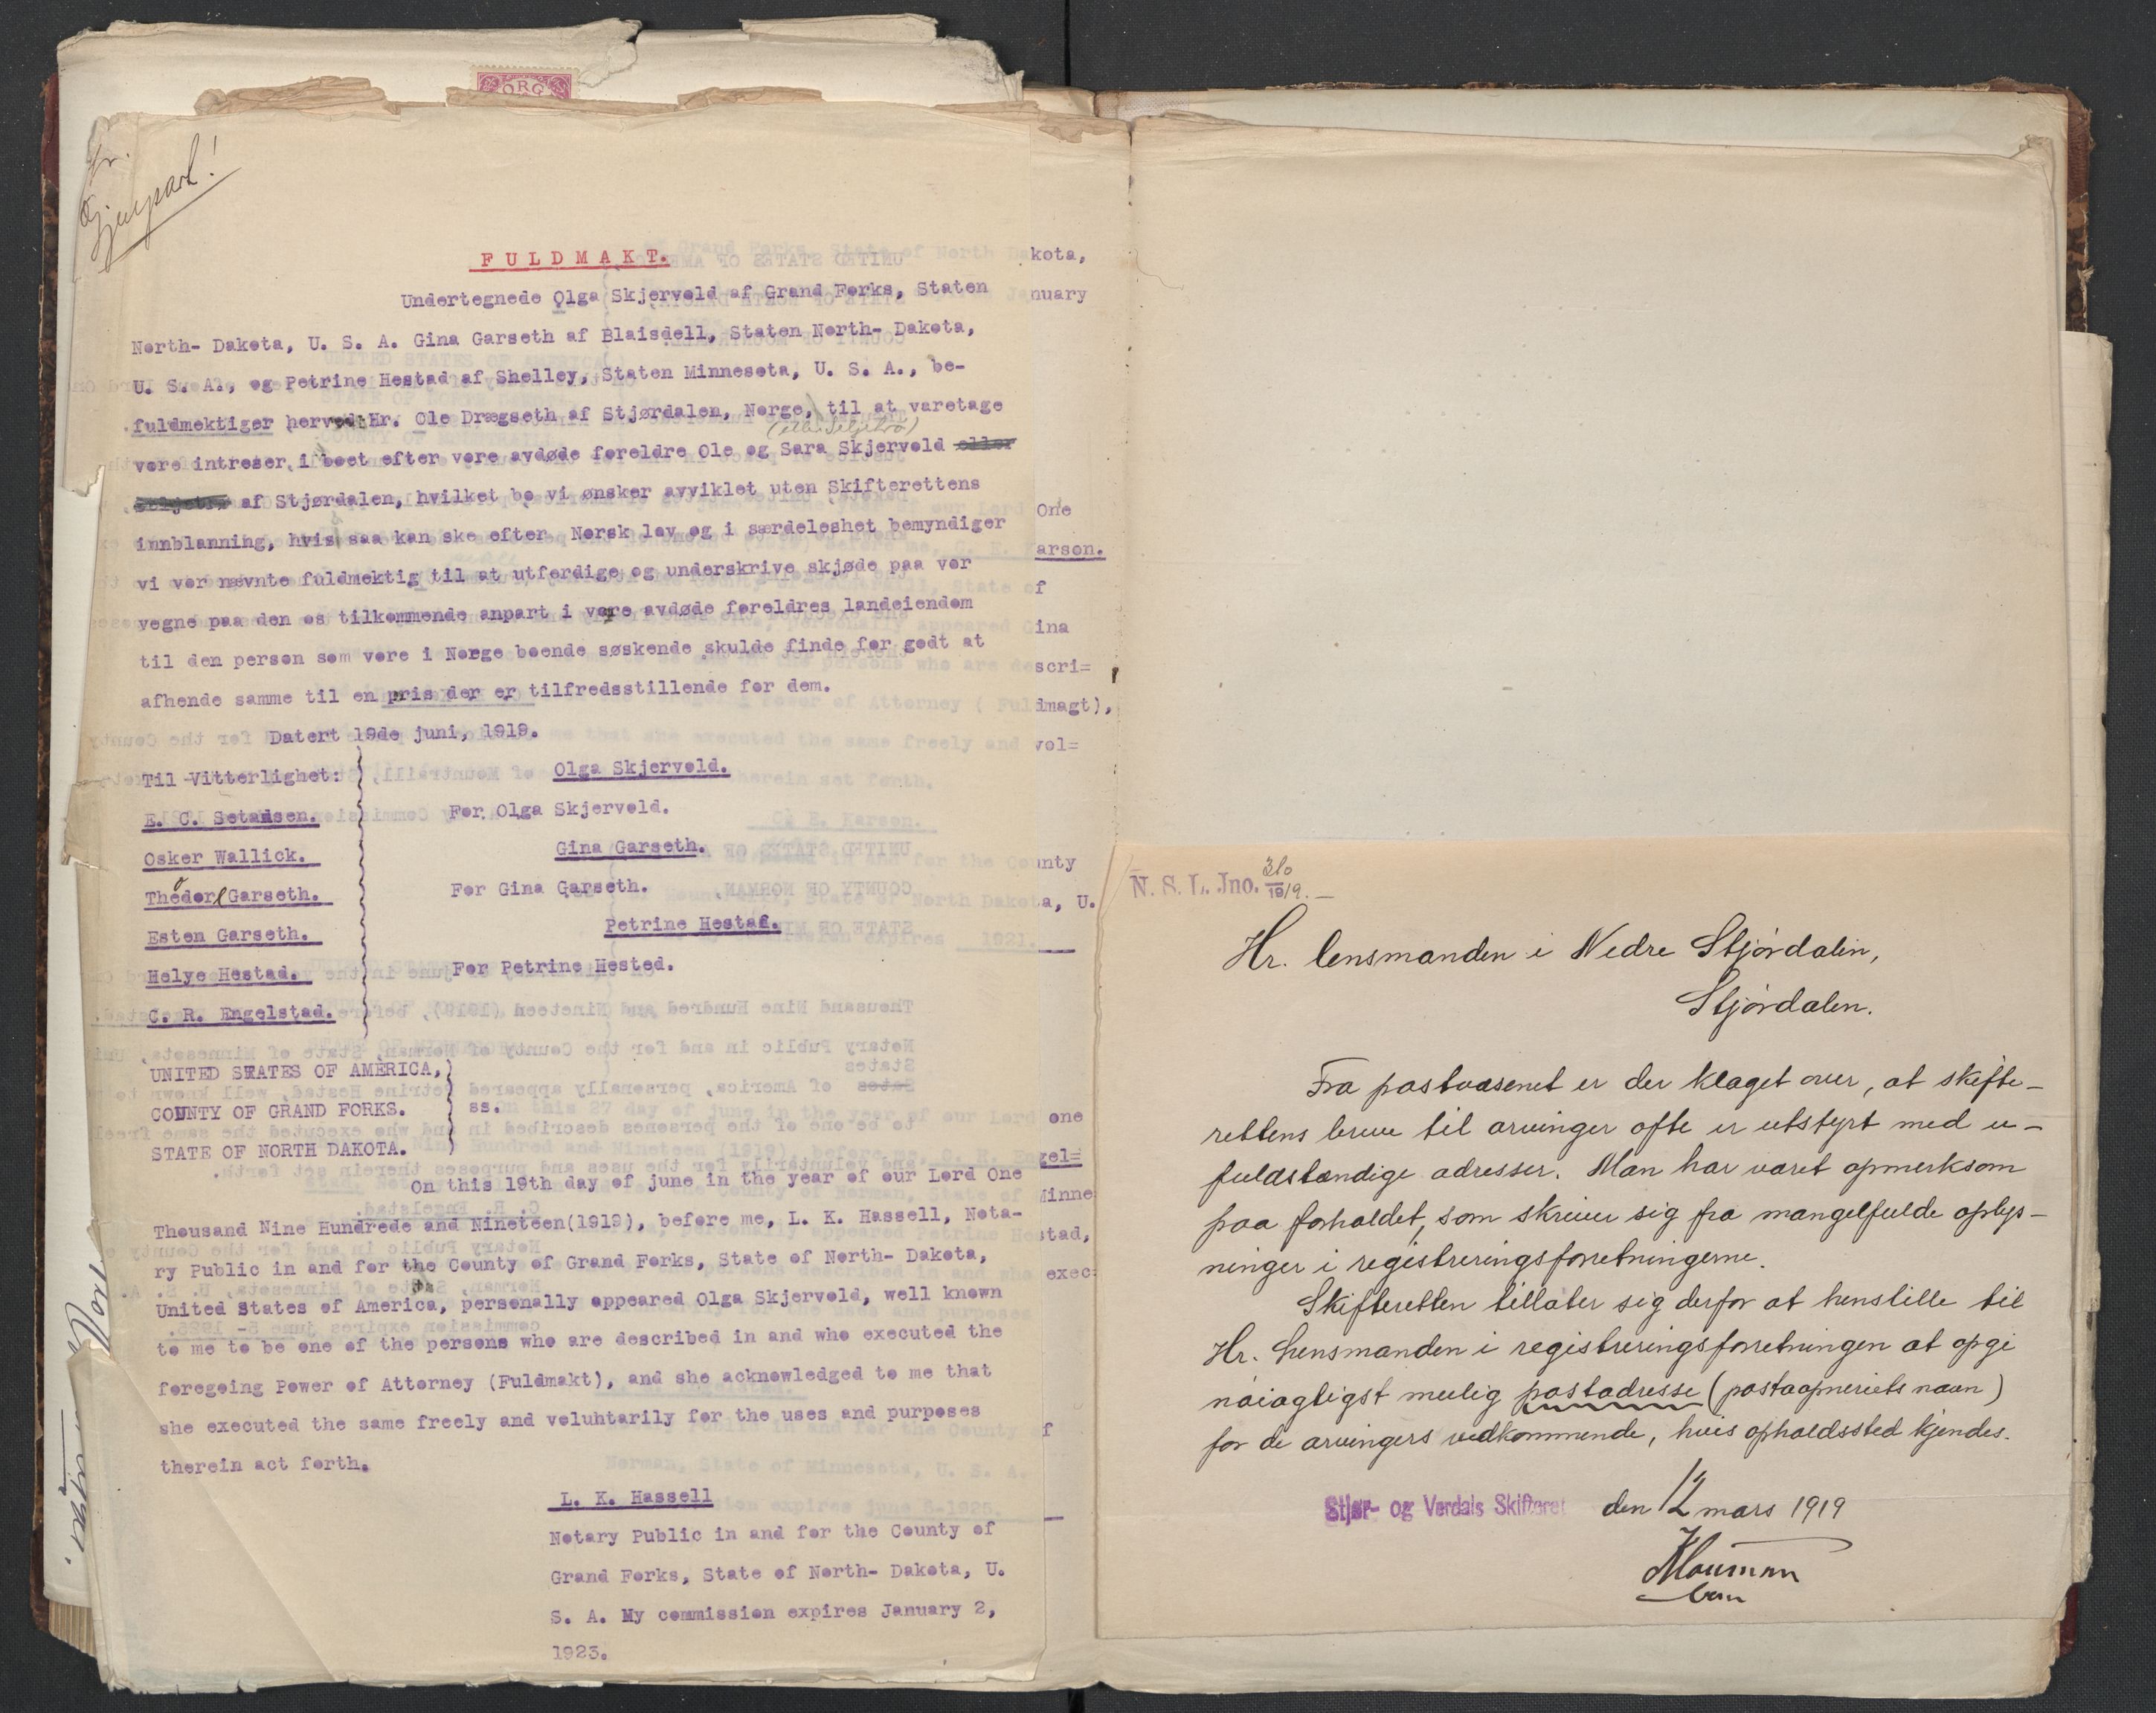 Gjenpart!
FULDMAKT.
Undertegnede Olga Skjerveld af Grand Forks, Staten
North- Dakota, U. S. A. Gina Garseth af Blaisdell, Staten North- Dakota,
U. S. A., og Petrine Hestad af Shelley, Staten Minnesota, U. S. A., be-
fuldmektiger herved Hr. Ole Drægseth af Stjørdalen, Norge, til at varetage
vore intreser i boet efter vore avdøde foreldre Ole og Sara Skjerveld eller
af Stjørdalen, hvilket bo vi ønsker avviklet uten Skifterettens
innblanning, hvis saa kan ske efter Norsk lov og i særdeleshet bemyndiger
vi vor nævnte fuldmektig til at utferdige og underskrive skjøde paa vor
vegne paa den os tilkommende anpart i vore avdøde foreldres landeiendom
til den person som vore i Norge boende søskende skulde finde for godt at
afhende samme til en pris der er tilfredsstillende for dem.
Datert 19de juni, 1919.
Til Vitterlighet:
Olga Skjerveld.
E. C. Setansen.
For Olga Skjerveld.
Osker Wallick.
Gina Garseth.
Theodor Garseth.
For Gina Garseth.
Esten Garseth.
Petrine Hestad.
Helye Hestad.
For Petrine Hested.
C. R. Engelstad.
UNITED STATES OF AMERICA,)
COUNTY OF GRAND FORKS. ) ss.
STATE OF NORTH DAKOTA. )
On this 19th day of june in the year of our Lord One
Thousand Nine Hundrede and Nineteen(1919), before me, L. K. Hassell, Nota-
ry Public in and for the County of Grand Forks, State of North- Dakota,
United States of America, personally appeared Olga Skjerveld, well known
to me to be one of the persons who are described in and who executed the
foregoing Power of Attorney (Fuldmakt), and she acknowledged to me that
she executed the same freely and voluhtarily for the uses and purposes
therein act forth.
L. K. Hassell
Notary Public in and for the County of
Grand Forks, State of North- Dakota, U.
S. A. My commission expires January 2,
1923.
kota,
nuary
One
arson.
f
ina
scri=
dmagt),
vol=
nty
a, U.
one
gel=
Minne
stad,
exec
f
N. S. L. Jno. 310/1919.-
Hr. lensmanden i Nedre Stjørdalen,
Stjørdalen.
Fra postvæsenet er der klaget over, at skifte-
rettens breve til arvinger ofte er utstyrt med u-
fuldstændige adresser. Man har været opmerksom
paa forholdet, som skriver sig fra mangelfulde oplys-
ninger i registreringsforretningerne.
Skifteretten tillater sig derfor at henstille til
Hr. Lensmanden i registreringsforretningen at opgi
nøiagtigst mulig postadresse (postaapneriets navn)
for de arvingers vedkommende, hvis opholdssted kjendes.
Stjør- og Værdals Skifteret den 12 mars 1919